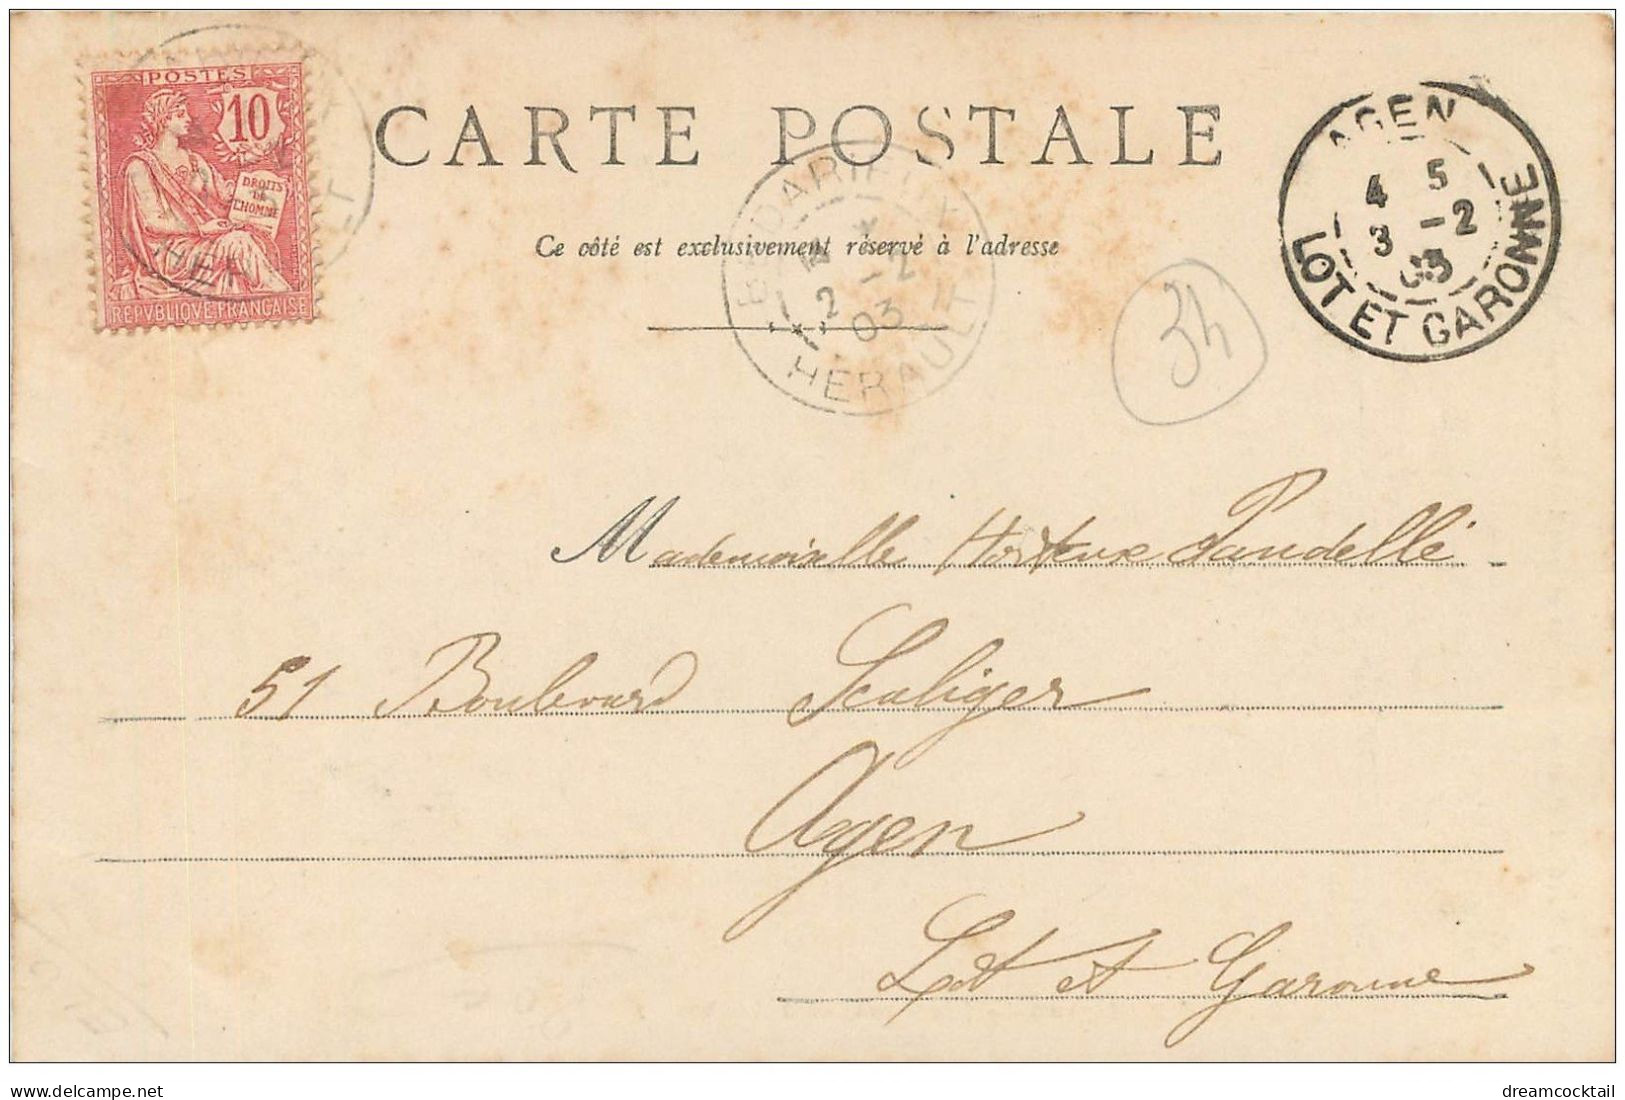 POSTES
10
DROITS
DE
L'HOMME
REPVBLIQVE FRANÇAISE
CARTE POSTALE
Ce côté est exclusivement réservé à l'adresse
BEDARIEUX
2 -2
03
HERAULT
AGEN
4 5
3 -2
03
LOT ET GARONNE
34
Mademoiselle Hortense Pandellé
51 Boulevard Scaliger
Agen
Lot et Garonne
delcampe.net
dreamcocktail